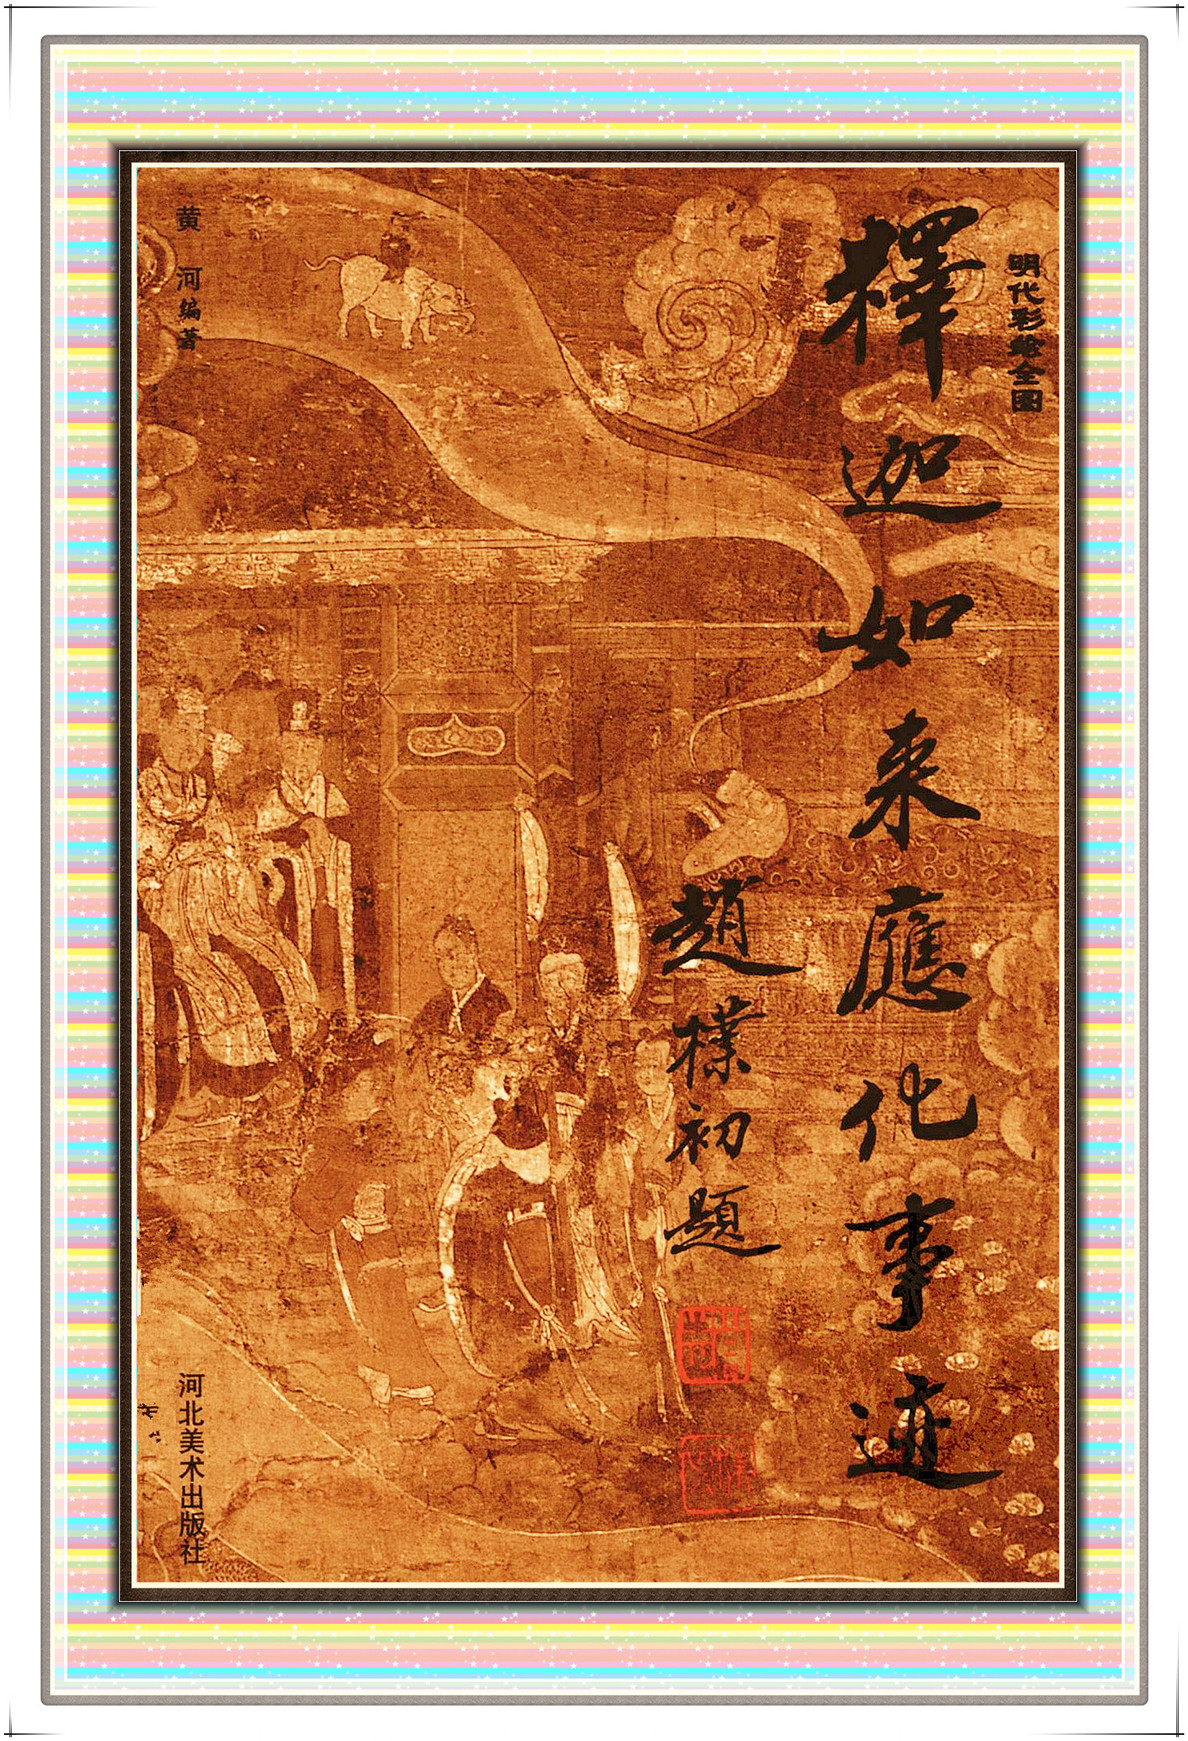 明代彩绘全图
釋迦如来應化事迹
趙樸初題
黄河编著
河北美术出版社